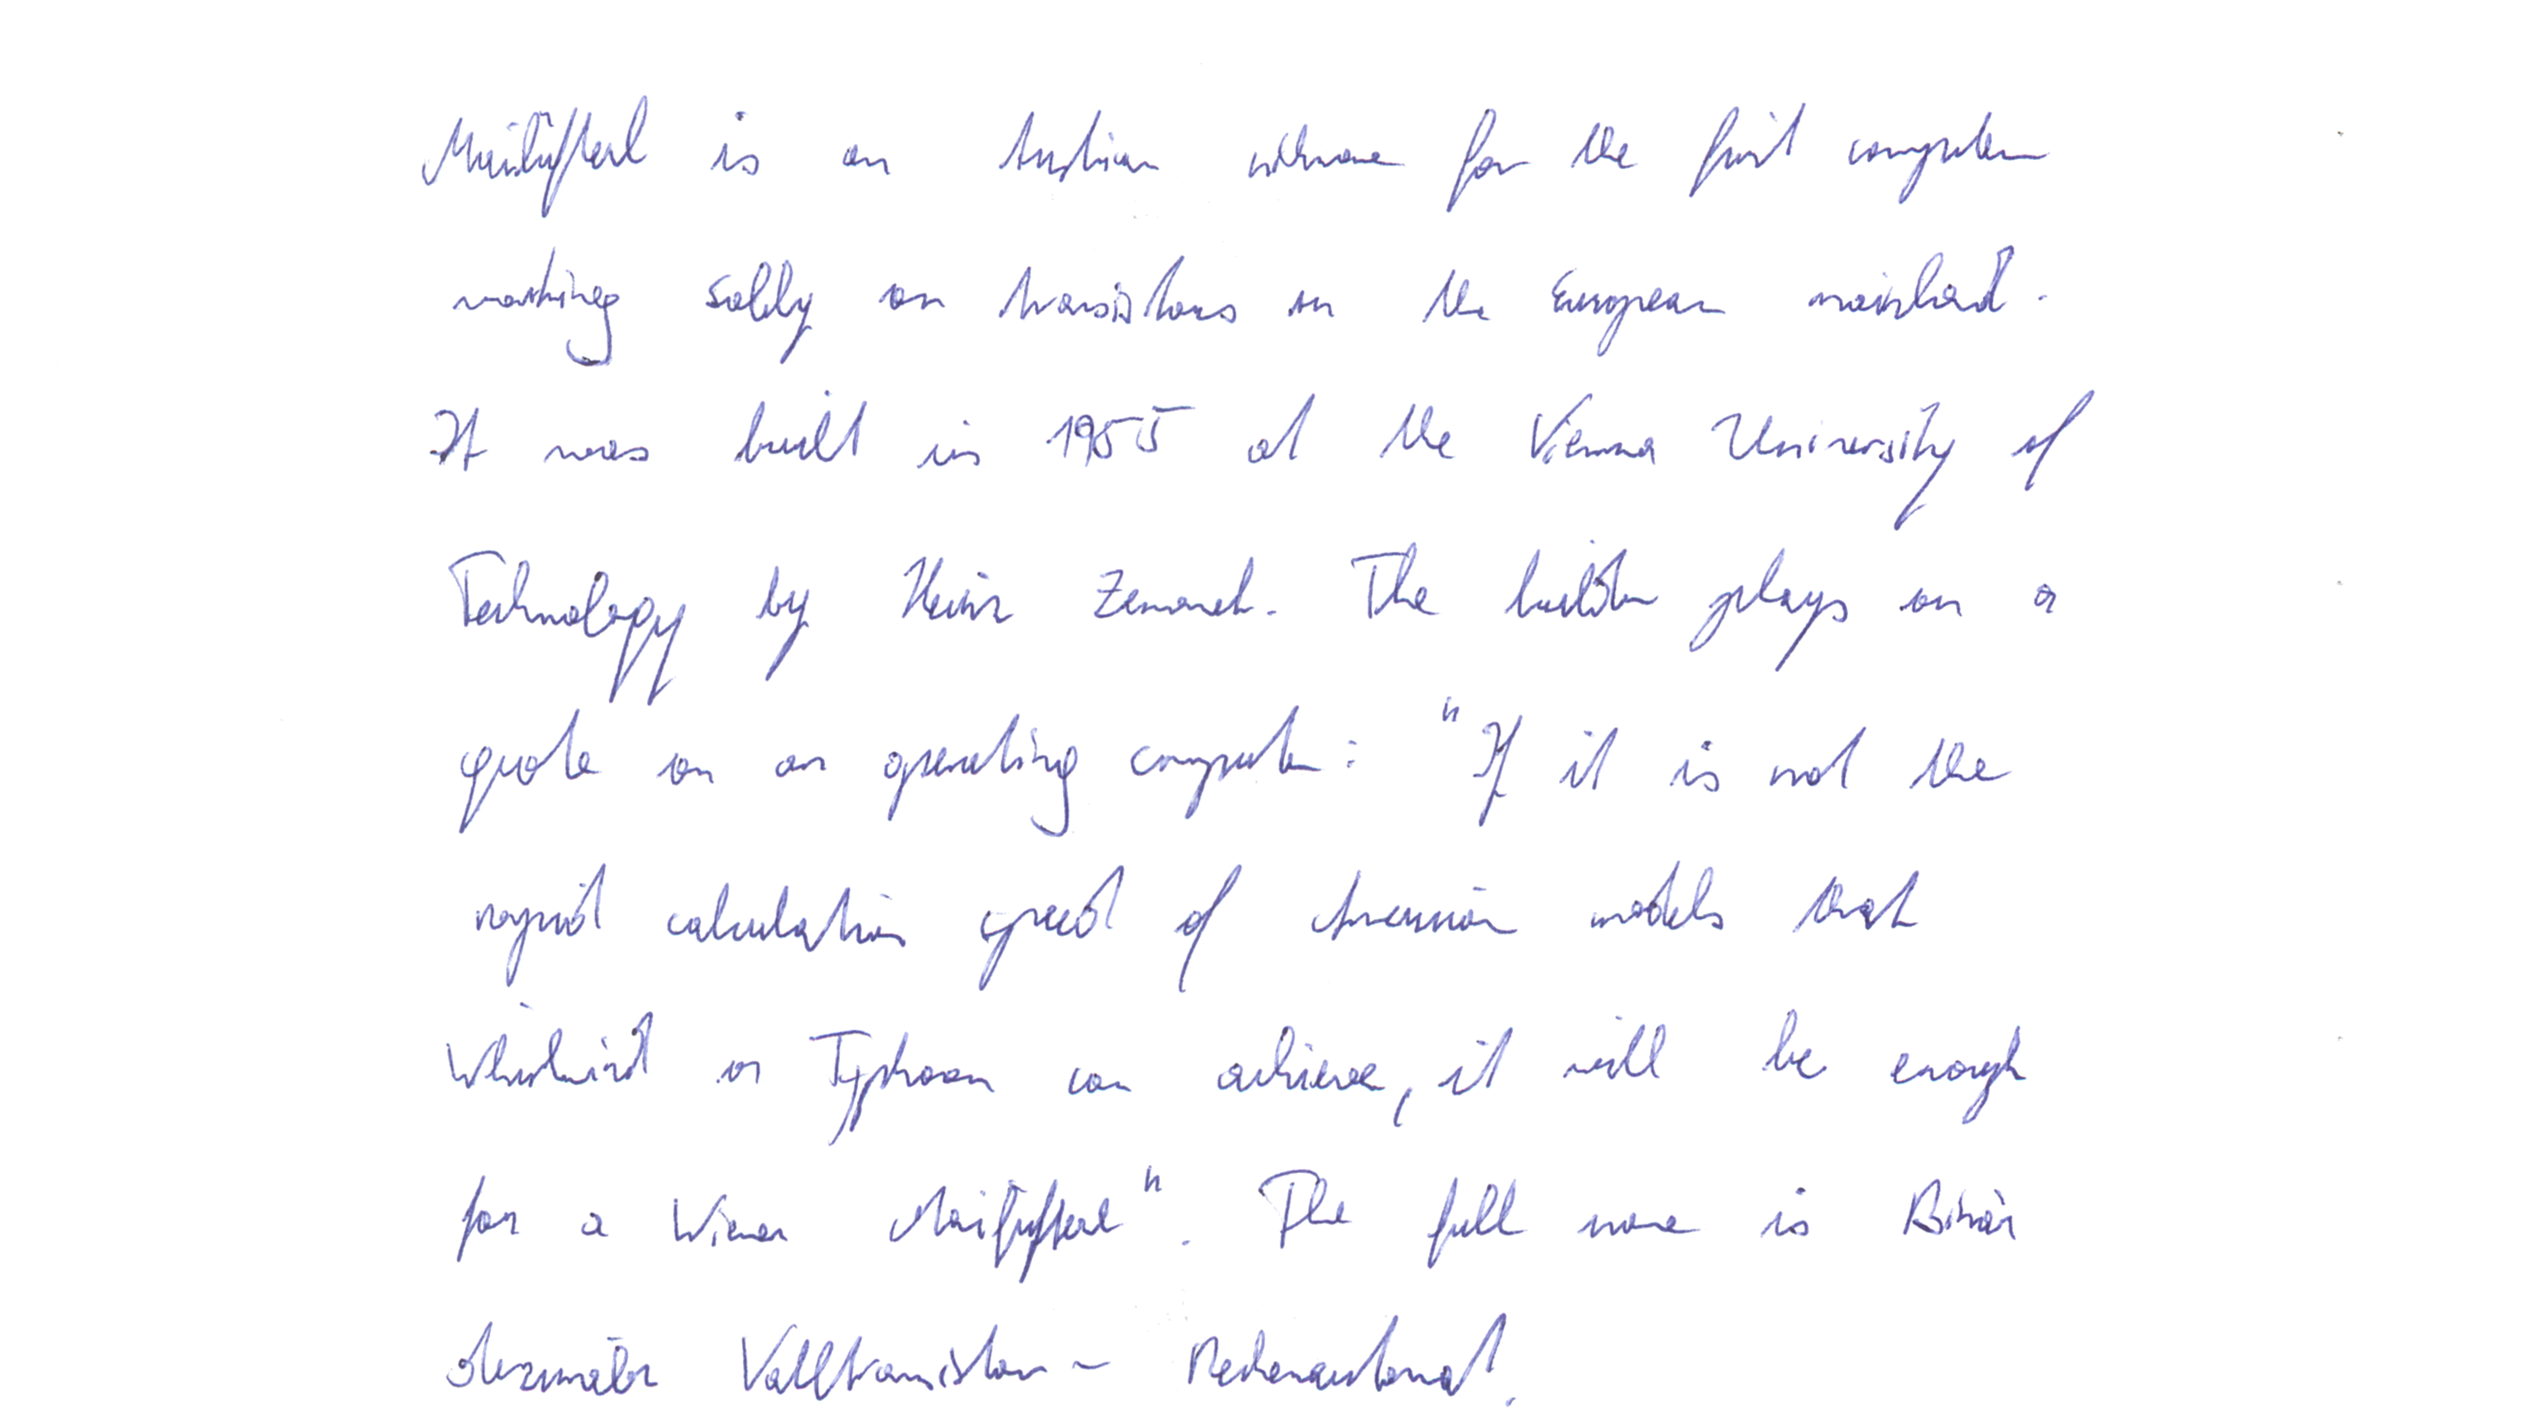 Mailüfterl is an Austrian nickname for the first computer
working solely on transistors on the European mainland.
It was built in 1955 at the Vienna University of
Technology by Heinz Zemanek. The builder plays on a
quote on an operating computer: "If it is not the
rapid calculation speed of American models that
Whirlwind or Typhoon can achieve, it will be enough
for a Wiener Mailüfterl". The full name is Binär
dezimaler Volltransistor - Rechenautomat.